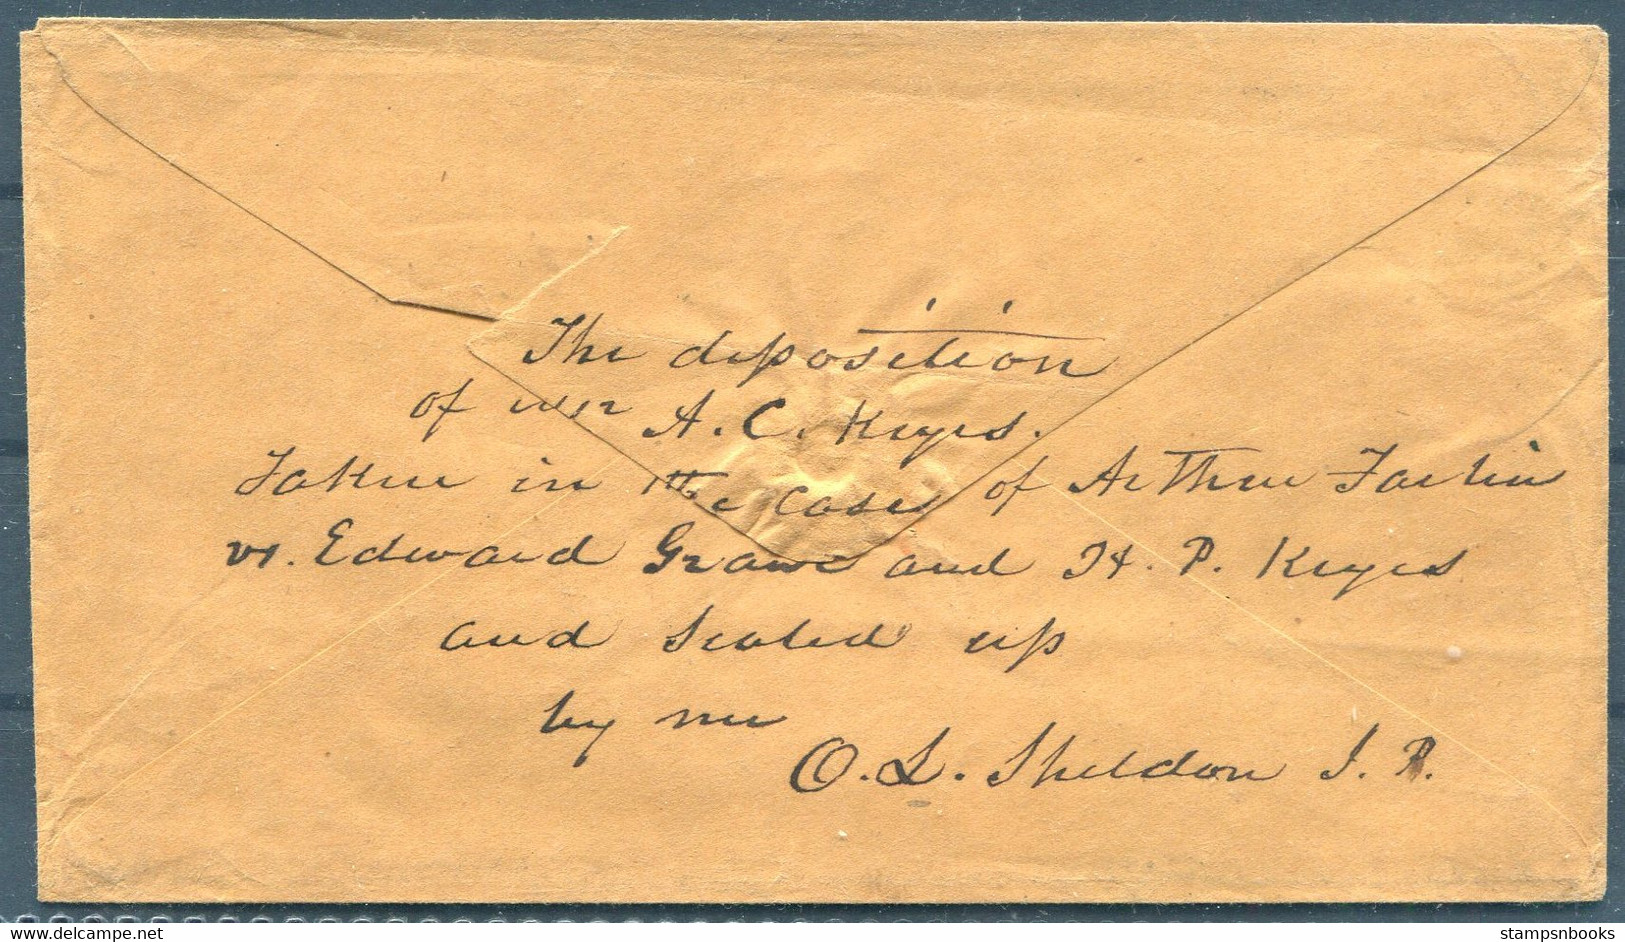 The deposition
of A. C. Keyes.
Taken in the case of Arthur
vs. Edward and H. P. Keyes
and sealed up
by me
O. L. Sheldon J. P.
www.delcampe.net
stampsnbooks